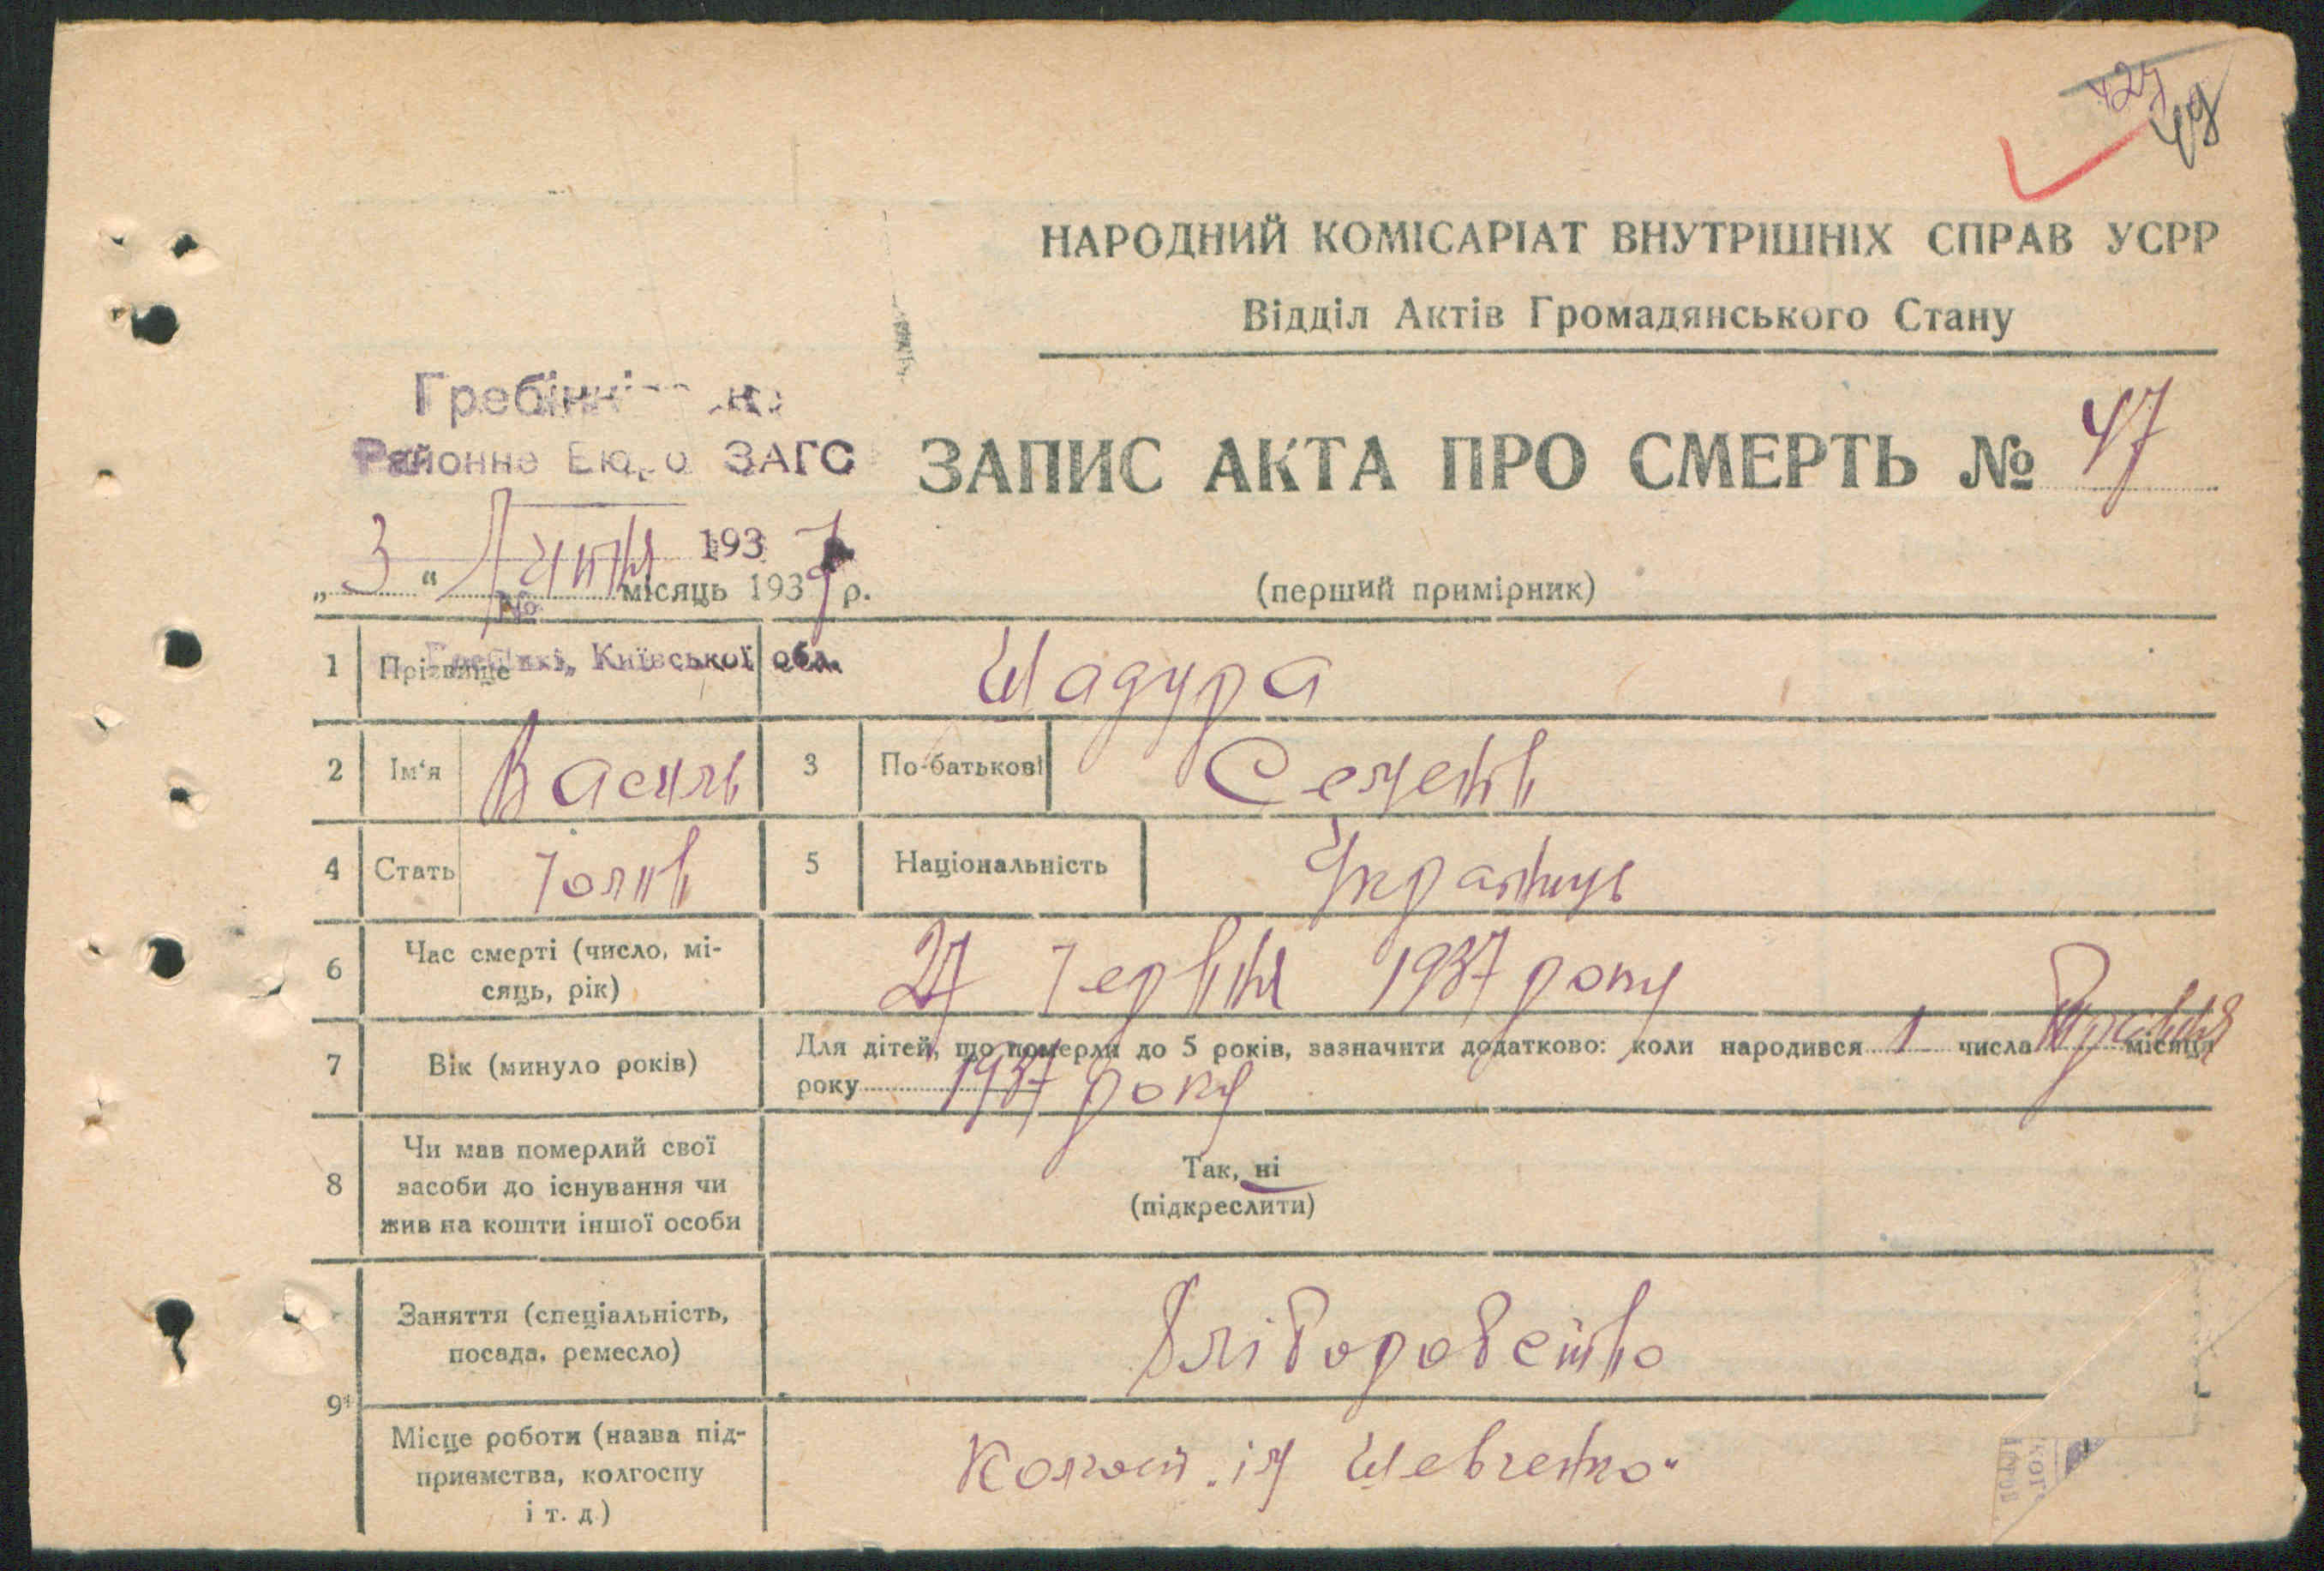 49
НАРОДНИЙ КОМІСАРІАТ ВНУТРІШНІХ СПРАВ УСРР
Відділ Актів Громадянського Стану
Районне Бюро ЗАГС
ЗАПИС АКТА ПРО СМЕРТЬ № 47
193 7
„3“ Липня місяць 1937 р.
№
(перший примірник)
Київської обл.
1 Прізвище Шадура
2 Ім'я Василь 3 По-батькові Семенів
4 Стать Чолнів 5 Національність Українець
6 Час смерті (число, мі-
сяць, рік) 27 Червня 1937 року
7 Вік (минуло років) Для дітей, що померли до 5 років, зазначити додатково: коли народився 1 числа Травня місяця
року 1937 року
8 Чи мав померлий свої
засоби до існування чи
жив на кошти іншої особи
Так, ні
(підкреслити)
9 Заняття (спеціальність,
посада, ремесло) Хліборобство
Місце роботи (назва під-
приємства, колгоспу
і т. д.) Колгосп. ім Шевченко"